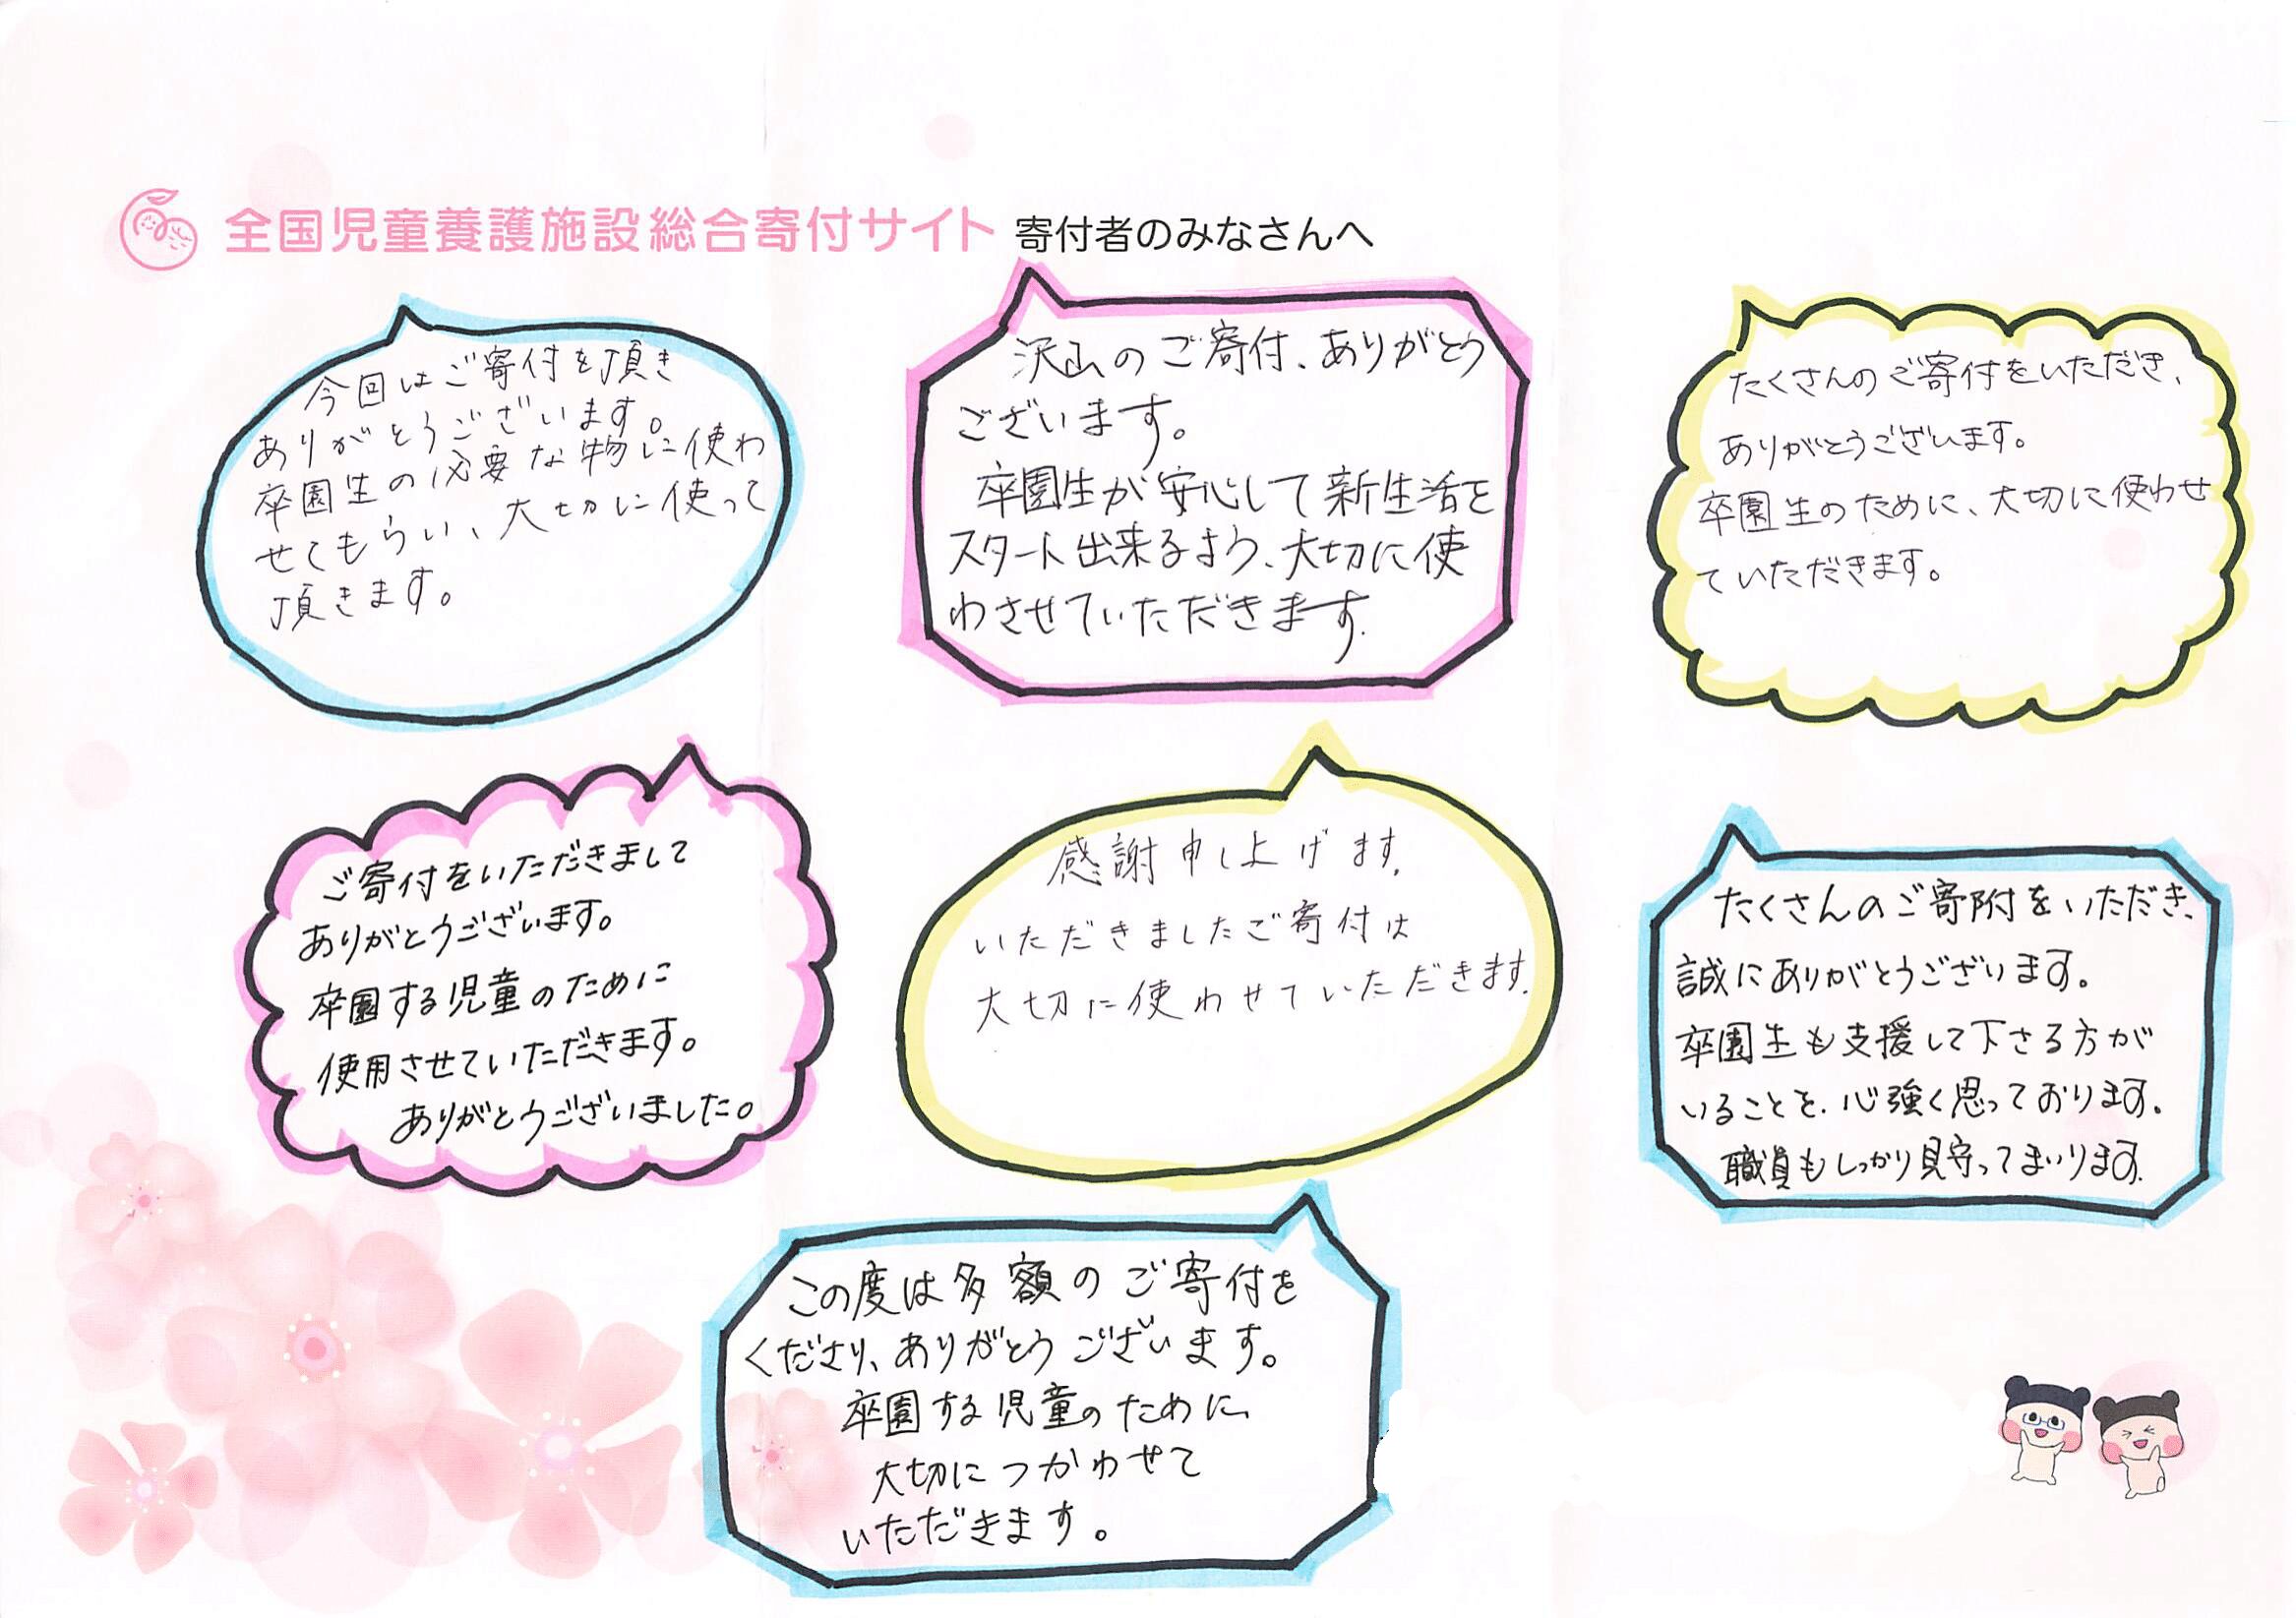 全国児童養護施設総合寄付サイト 寄付者のみなさんへ
今回はご寄付を頂き
ありがとうございます。
卒園生の必要な物に使わ
せてもらい、大切に使って
頂きます。
沢山のご寄付、ありがとう
ございます。
卒園生が安心して新生活を
スタート出来るよう、大切に使
わさせていただきます.
たくさんのご寄付をいただき、
ありがとうございます。
卒園生のために、大切に使わせ
ていただきます。
ご寄付をいただきまして
ありがとうございます。
卒園する児童のために
使用させていただきます。
ありがとうございました。
感謝申し上げます.
いただきましたご寄付は
大切に使わせていただきます.
たくさんのご寄附をいただき、
誠にありがとうございます。
卒園生も支援して下さる方が
いることを、心強く思っております。
職員もしっかり見守ってまいります.
この度は多額のご寄付を
くださり、ありがとうございます。
卒園する児童のために、
大切につかわせて
いただきます。